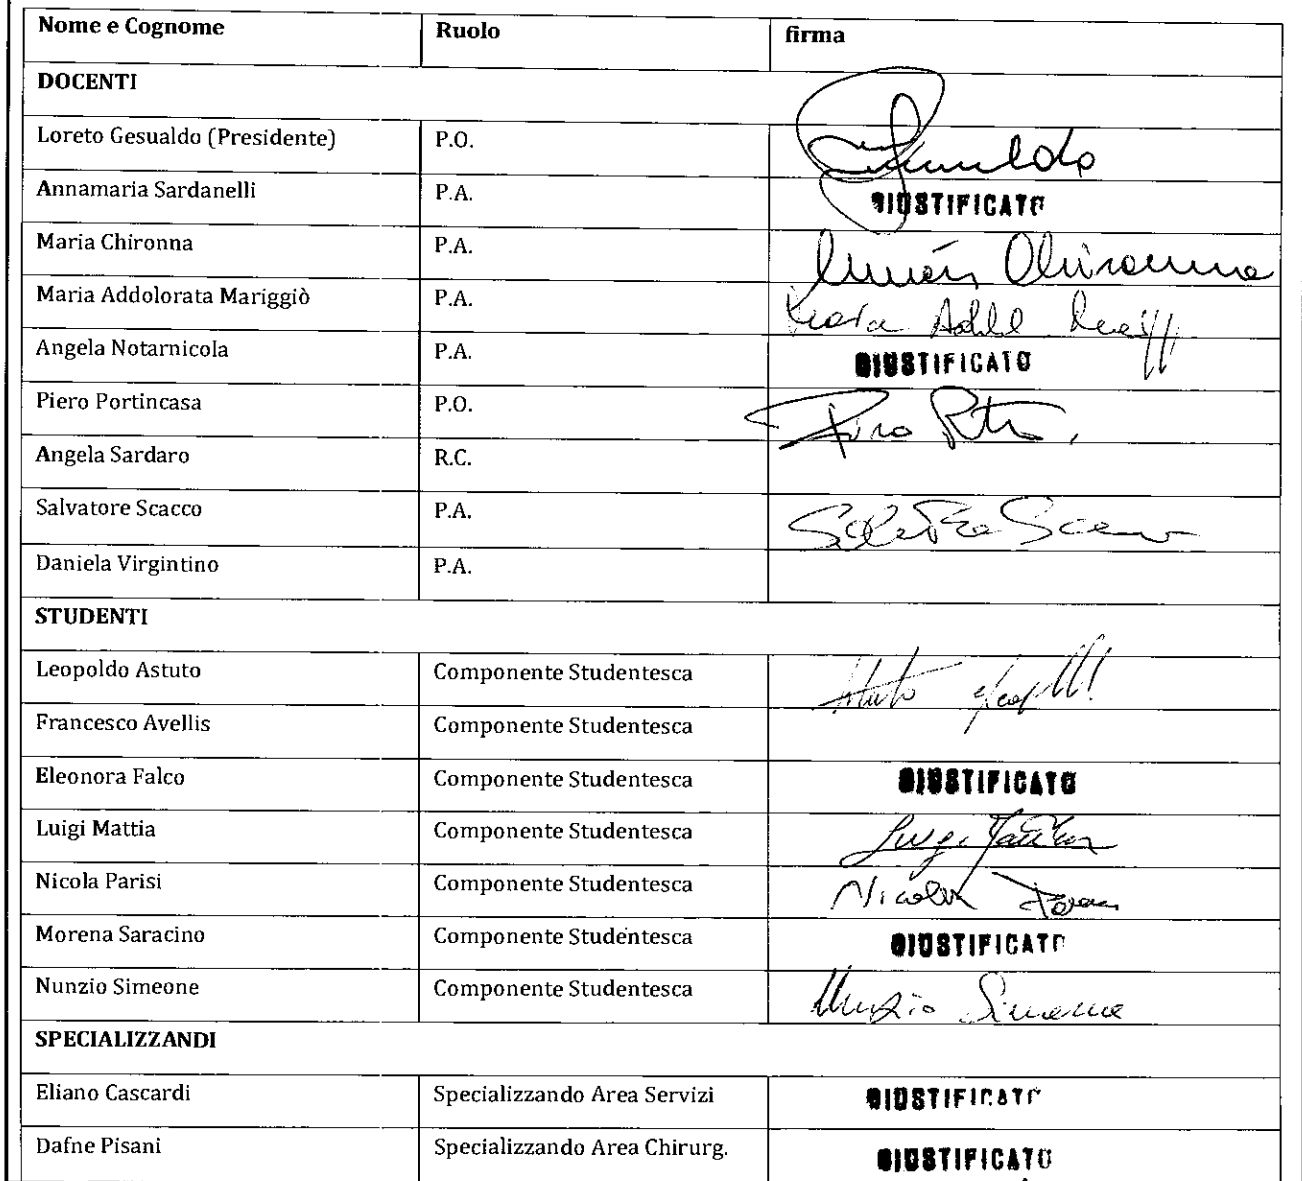 Nome e Cognome Ruolo firma
DOCENTI
Loreto Gesualdo (Presidente) P.O. Gesualdo
Annamaria Sardanelli P.A. GIUSTIFICATO
Maria Chironna P.A. Maria Chironna
Maria Addolorata Mariggiò P.A. Maria Add
Angela Notarnicola P.A. GIUSTIFICATO
Piero Portincasa P.O. Piero
Angela Sardaro R.C.
Salvatore Scacco P.A. Salvatore Scacco
Daniela Virgintino P.A.
STUDENTI
Leopoldo Astuto Componente Studentesca Astuto
Francesco Avellis Componente Studentesca
Eleonora Falco Componente Studentesca GIUSTIFICATO
Luigi Mattia Componente Studentesca Luigi Mattia
Nicola Parisi Componente Studentesca Nicola Parisi
Morena Saracino Componente Studentesca GIUSTIFICATO
Nunzio Simeone Componente Studentesca Nunzio Simeone
SPECIALIZZANDI
Eliano Cascardi Specializzando Area Servizi GIUSTIFICATO
Dafne Pisani Specializzando Area Chirurg. GIUSTIFICATO